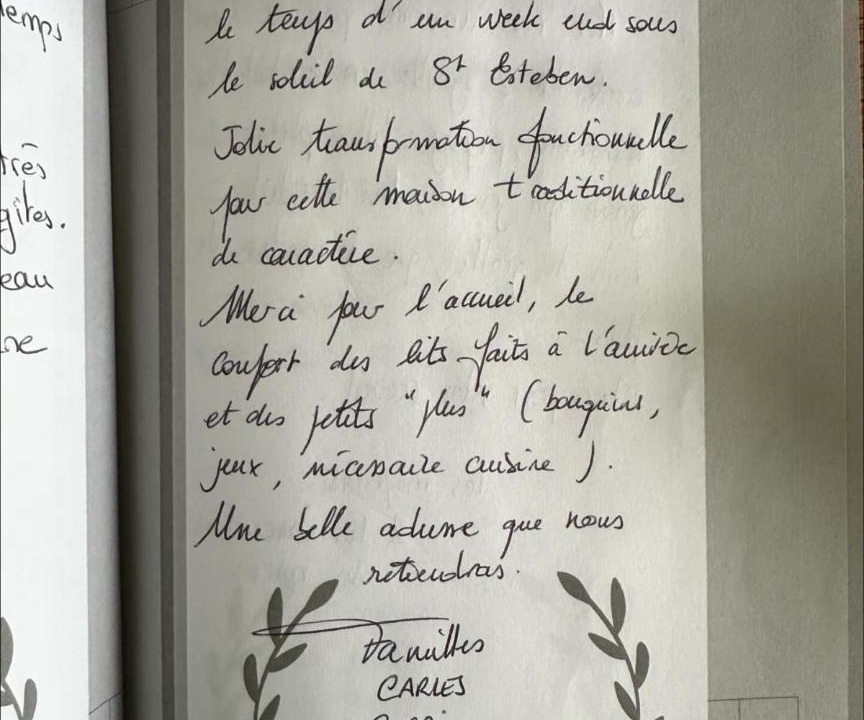 temps
très
gîtes.
eau
ne
le temps d'un week end sous
le soleil de St Esteben.
Jolie transformation fonctionnelle
pour cette maison traditionnelle
de caractère.
Merci pour l'accueil, le
confort des lits faits à l'arrivée
et des petits "plus" (bouquins,
jeux, nécessaire cuisine).
Une belle adresse que nous
retiendras.
Familles
CARLES